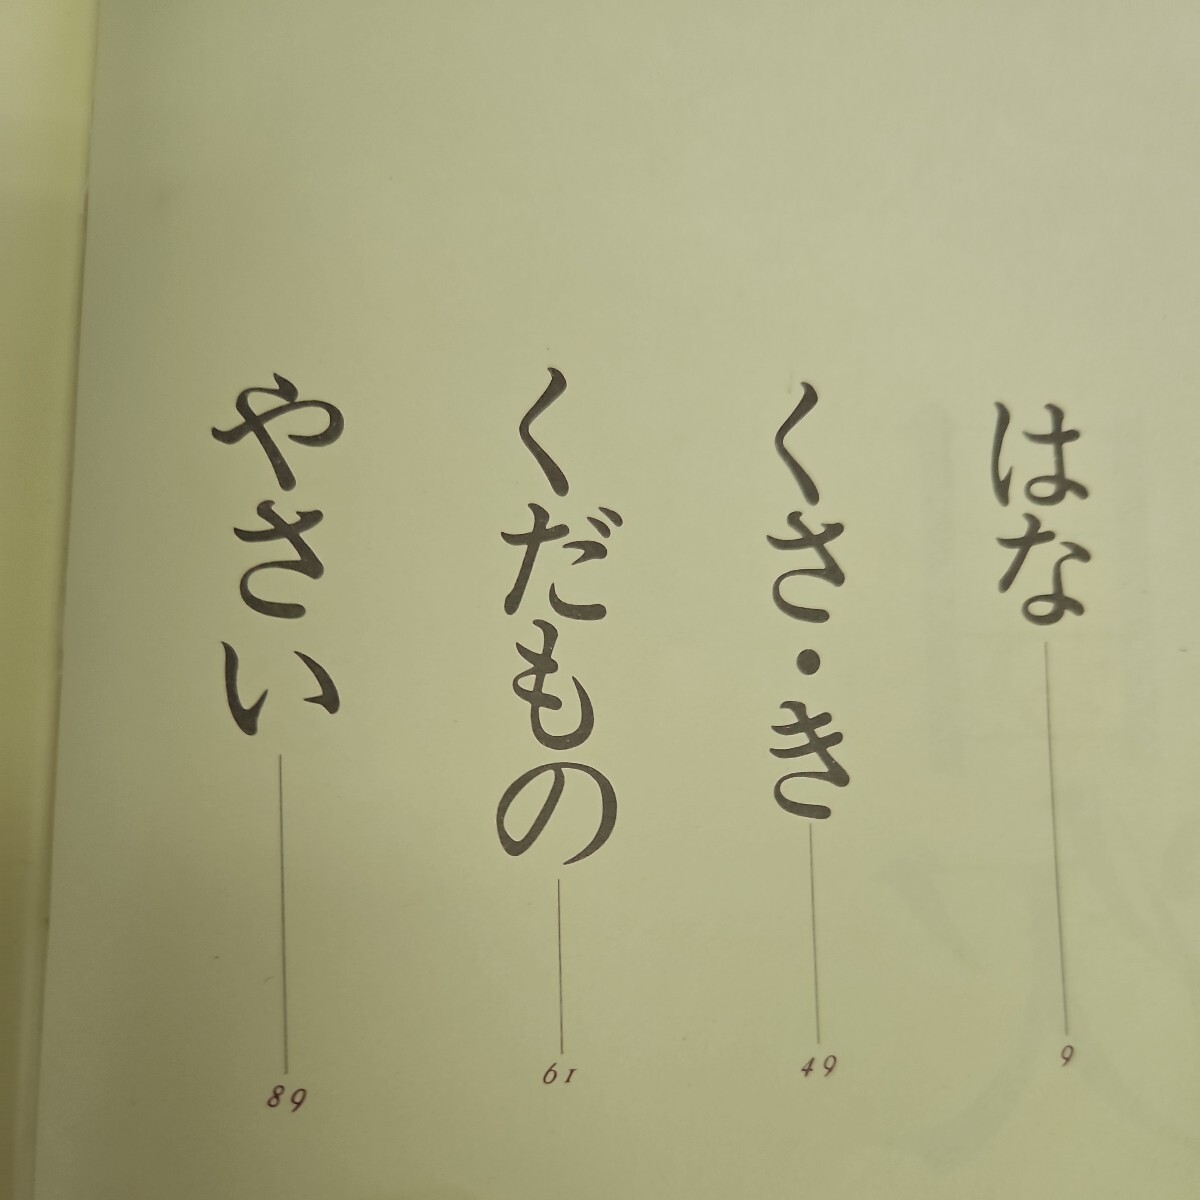 はな 9
くさ・き 49
くだもの 61
やさい 89